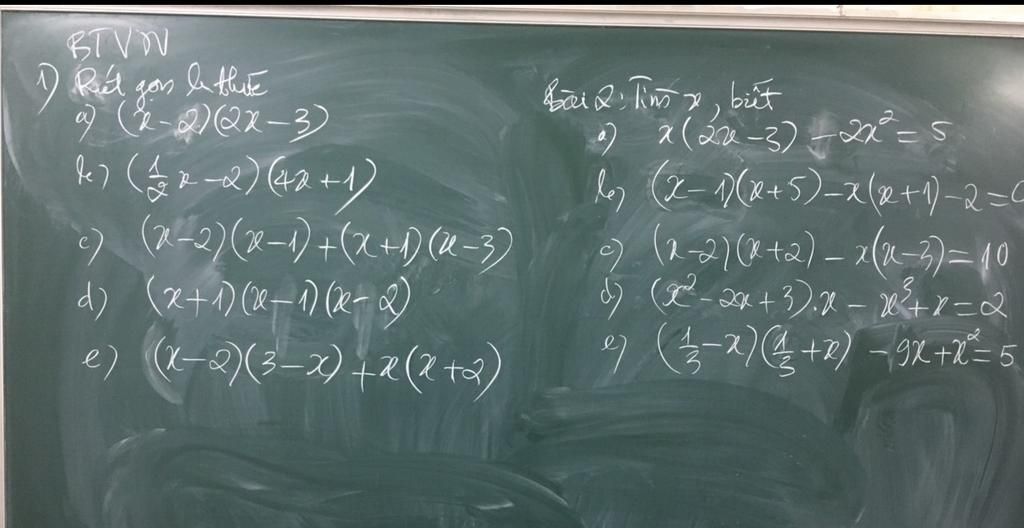 BTVN
1) Rút gọn b thức
a) (x-2)(2x-3)
b) (1/2 x-2)(4x+1)
c) (x-2)(x-1)+(x+1)(x-3)
d) (x+1)(x-1)(x-2)
e) (x-2)(3-x)+x(x+2)
Bài 2: Tìm x, biết
a) x(2x-3)-2x²=5
b) (x-1)(x+5)-x(x+1)-2=0
c) (x-2)(x+2)-x(x-3)=10
d) (x²-2x+3).x-x³+x=2
e) (1/3-x)(1/3+x)-9x+x²=5